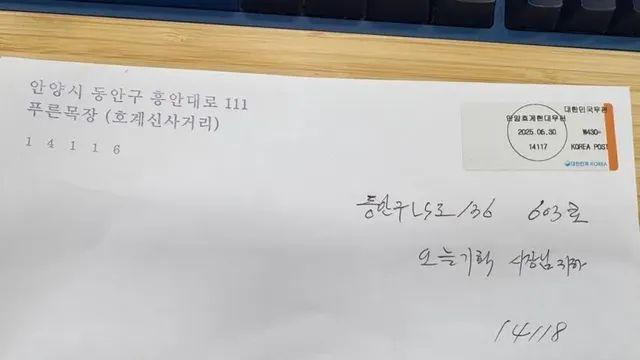 안양시 동안구 흥안대로 111
푸른목장 (호계신사거리)
1 4 1 1 6
대한민국우편
안양호계현대우편
2025.06.30
₩430
14117
KOREA POST
대한민국 KOREA
동안구 LS로 136 603호
오늘기획 사장님 귀하
14118